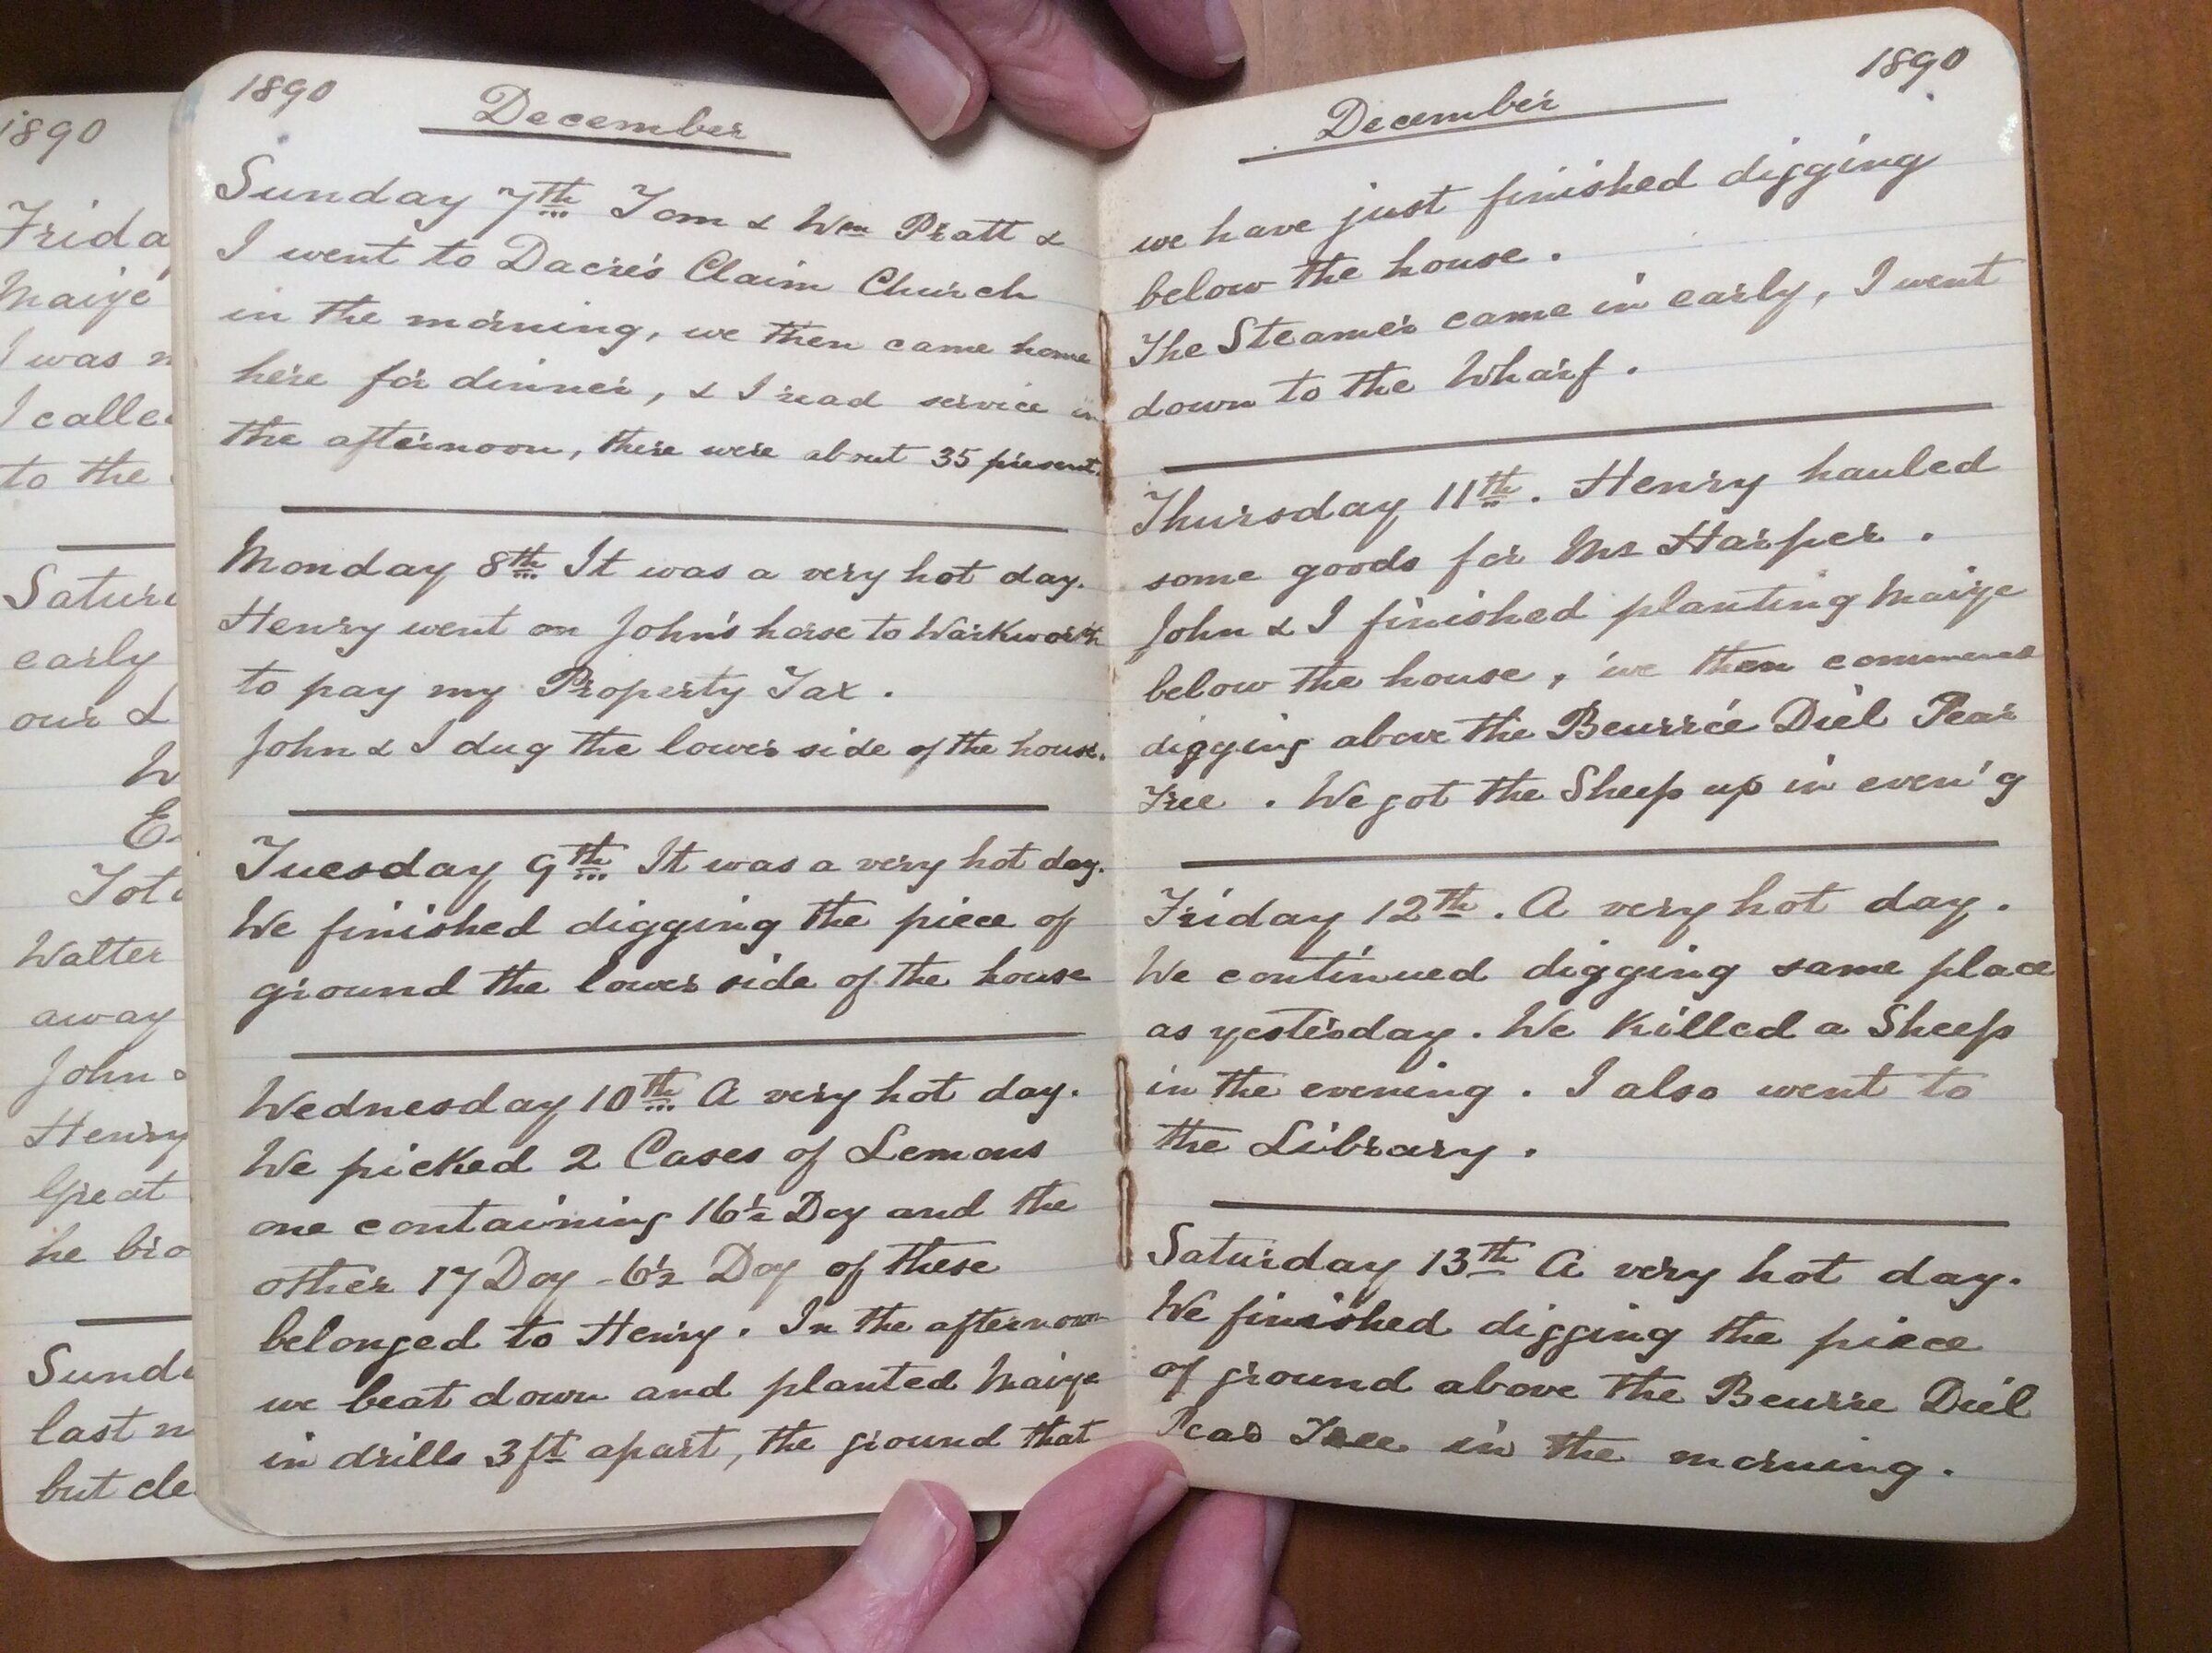 1890
Frida
Maize
I was
I calle
to the
Satur
early
our &
W
E
Tot
Walter
away
John &
Henry
Great
he bro
Sund
last
but
1890
December
Sunday 7th Tom & Wm Pratt &
I went to Dacre's Claim Church
in the morning, we then came home
here for dinner, & I read service in
the afternoon, there were about 35 present.
Monday 8th It was a very hot day.
Henry went on John's horse to Warkworth
to pay my Property Tax.
John & I dug the lower side of the house.
Tuesday 9th It was a very hot day.
We finished digging the piece of
ground the lower side of the house
Wednesday 10th A very hot day.
We picked 2 Cases of Lemons
one containing 16½ Doz and the
other 17 Doz - 6½ Doz of these
belonged to Henry. In the afternoon
we beat down and planted Maize
in drills 3 ft apart, the ground that
1890
December
we have just finished digging
below the house.
The Steamer came in early, I went
down to the Wharf.
Thursday 11th. Henry hauled
some goods for Mr Harper.
John & I finished planting Maize
below the house, we then commenced
digging above the Beurrée Diel Pear
Tree. We got the Sheep up in even'g
Friday 12th. A very hot day.
We continued digging same place
as yesterday. We Killed a Sheep
in the evening. I also went to
the Library.
Saturday 13th A very hot day.
We finished digging the piece
of ground above the Beurre Diel
Pear Tree in the morning.